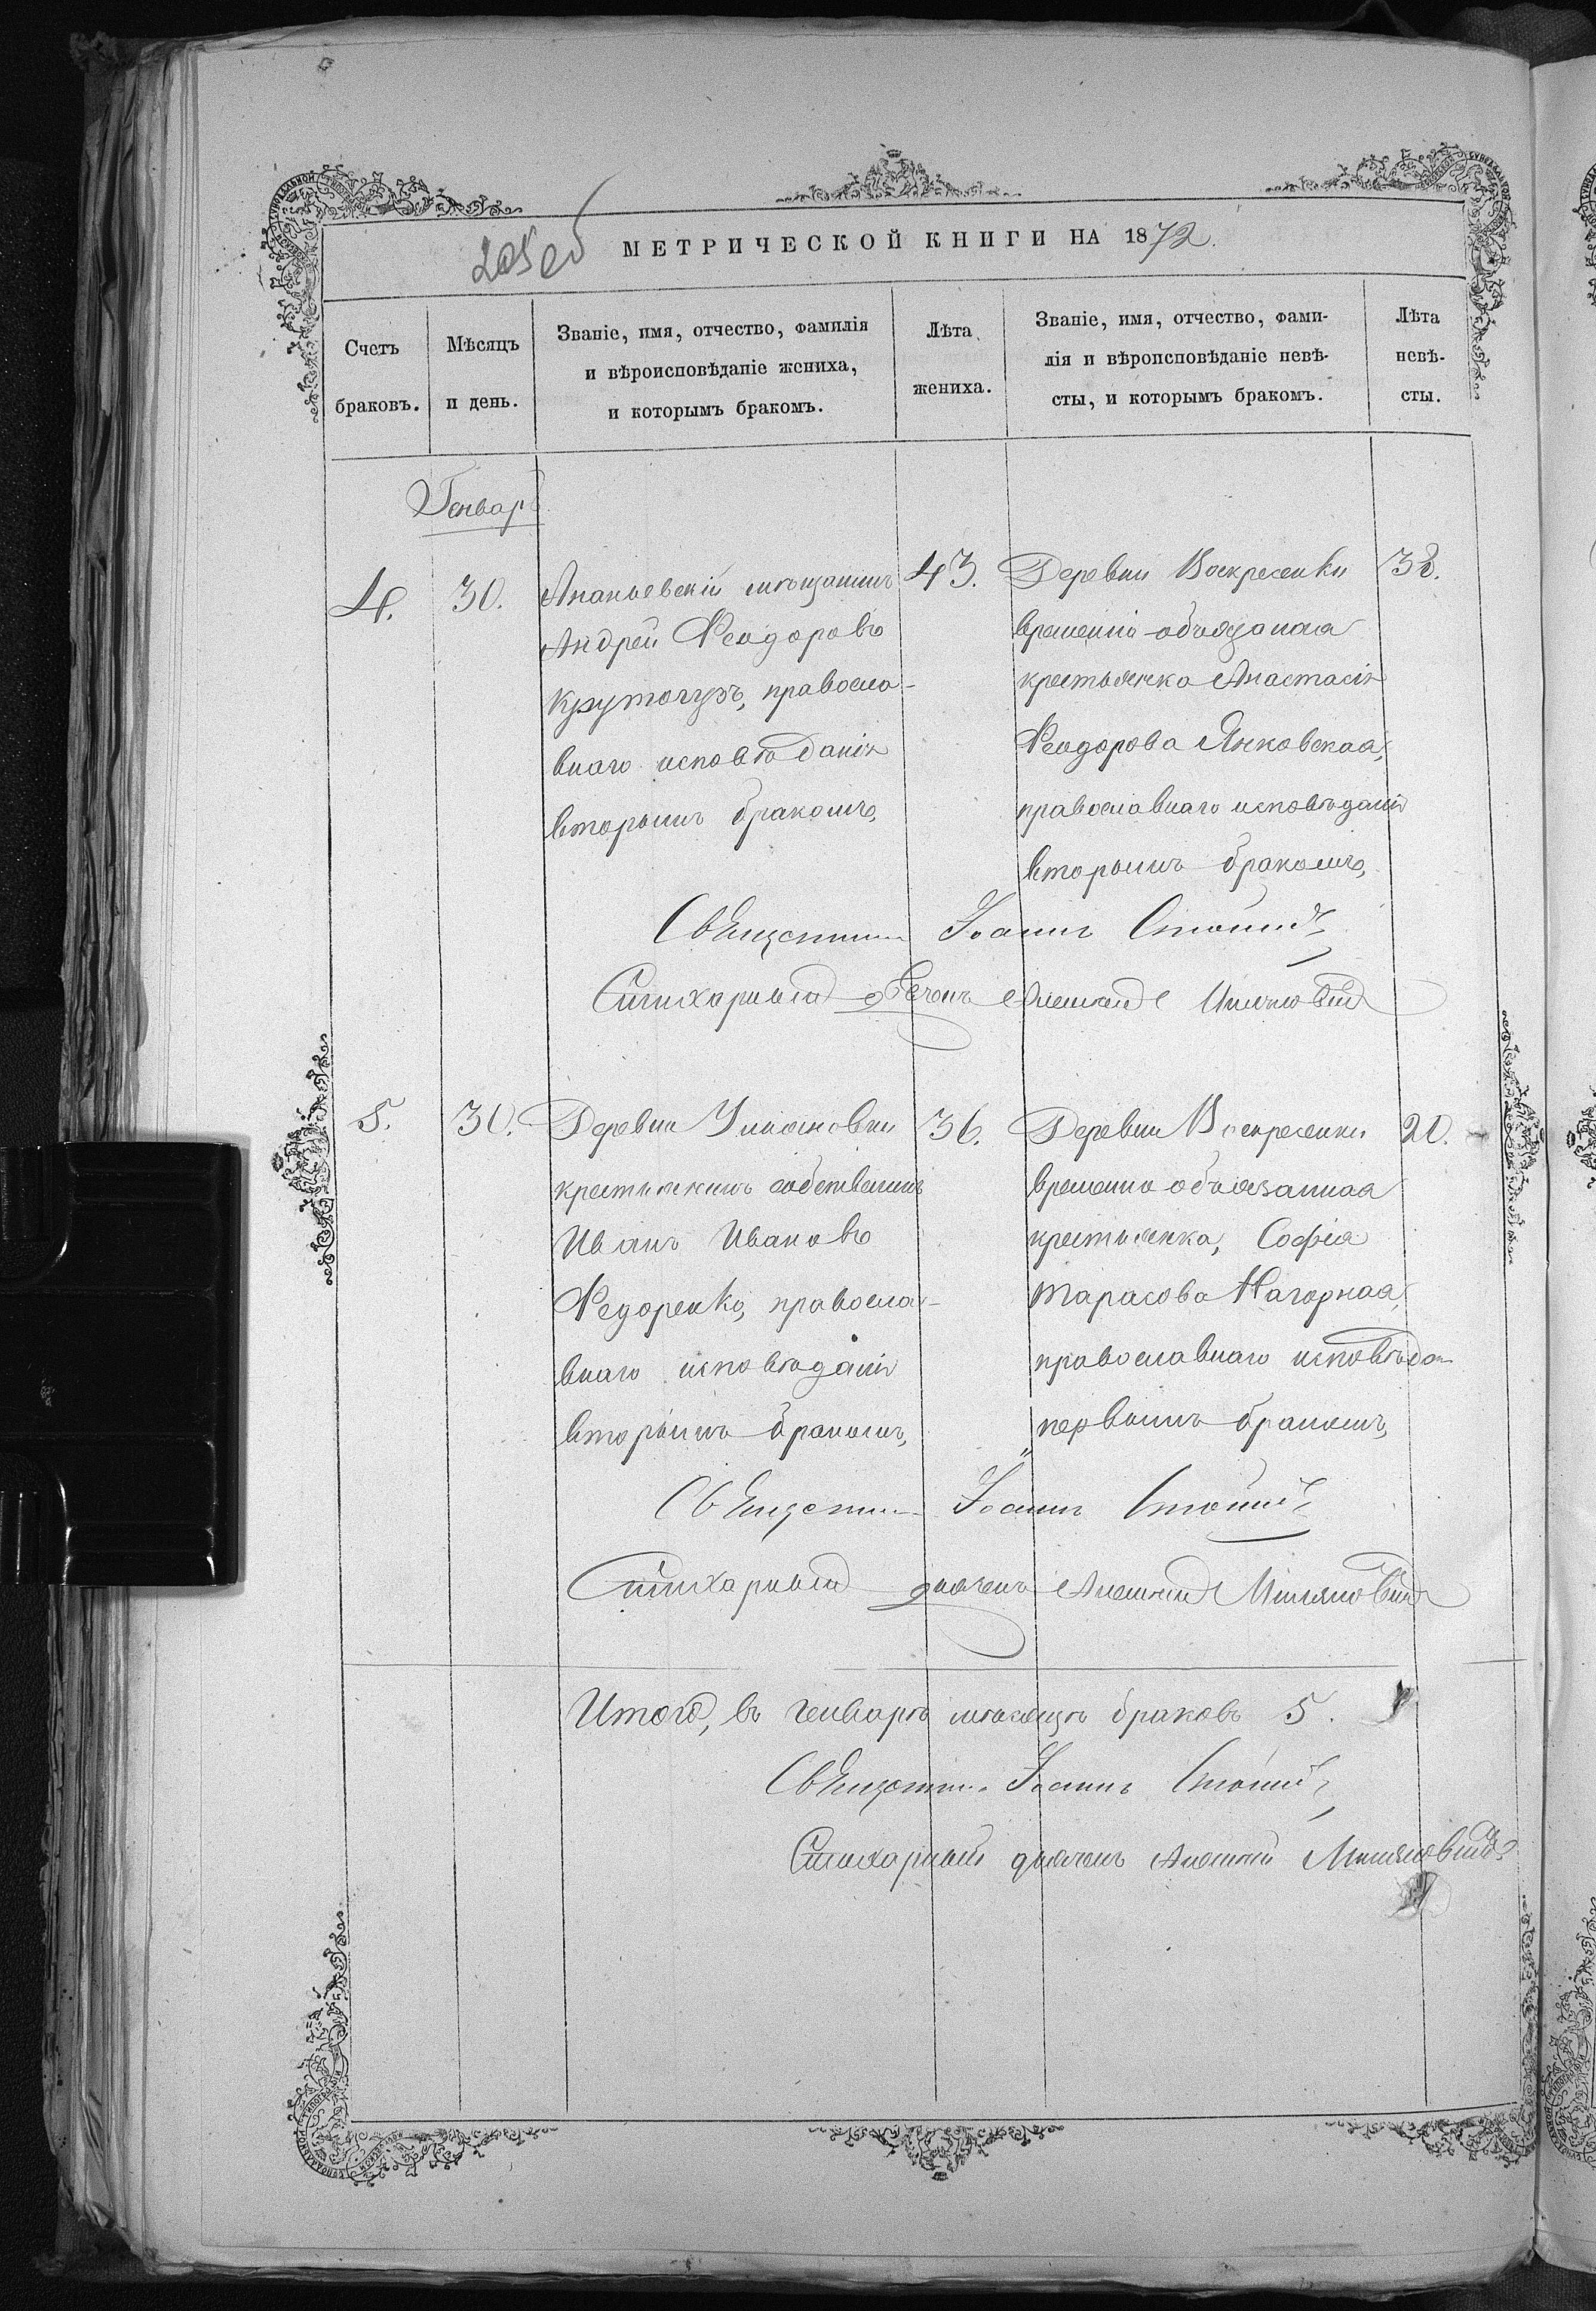 МЕТРИЧЕСКОЙ КНИГИ НА 1872.
Счетъ браковъ.
Мѣсяцъ и день.
Званіе, имя, отчество, фамилія
и вѣроисповѣданіе жениха,
и которымъ бракомъ.
Лѣта жениха.
Званіе, имя, отчество, фами-
лія и вѣроисповѣданіе невѣ-
сты, и которымъ бракомъ.
Лѣта невѣ-
сты.
Генварь
4.
30.
Ананьевскій мѣщанинъ
Андрей Ѳеодоровъ
Крутогузъ, правосла-
внаго исповѣданія
вторымъ бракомъ,
43.
Деревни Воскресенки
временно-обязаная
крестьянка Анастасія
Ѳеодорова Янковская,
православнаго исповѣданія
вторымъ бракомъ,
38.
Священникъ Іоаннъ
Стихарный дьячекъ Алексій
5.
30.
Деревни
крестьянинъ собственникъ
Иванъ Ивановъ
Ѳедоренко, правосла-
внаго исповѣданія
вторымъ бракомъ,
36.
Деревни Воскресенки
временно обязанная
крестьянка, Софія
Тарасова Нагорная,
православнаго исповѣда
первымъ бракомъ,
20.
Священникъ Іоаннъ
Стихарный дьячекъ Алексій
Итого, въ генварѣ мѣсяцѣ браковъ 5.
Священникъ Іоаннъ
Стихарный дьячекъ Алексій